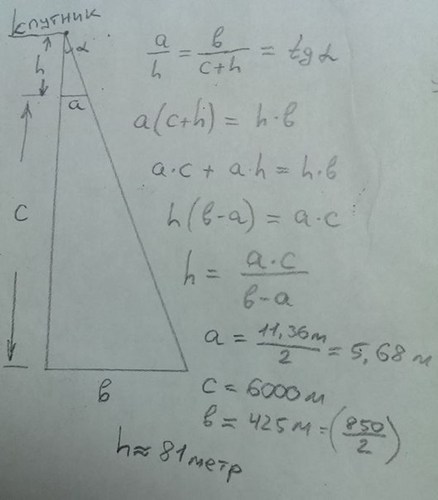 Спутник
α
h
a
c
в
a/h = в/(c+h) = tg α
a(c+h) = h·в
a·c + a·h = h·в
h(в-a) = a·c
h = a·c/(в-a)
a = 11,36м/2 = 5,68 м
c = 6000м
в = 425м = (850/2)
h≈81метр